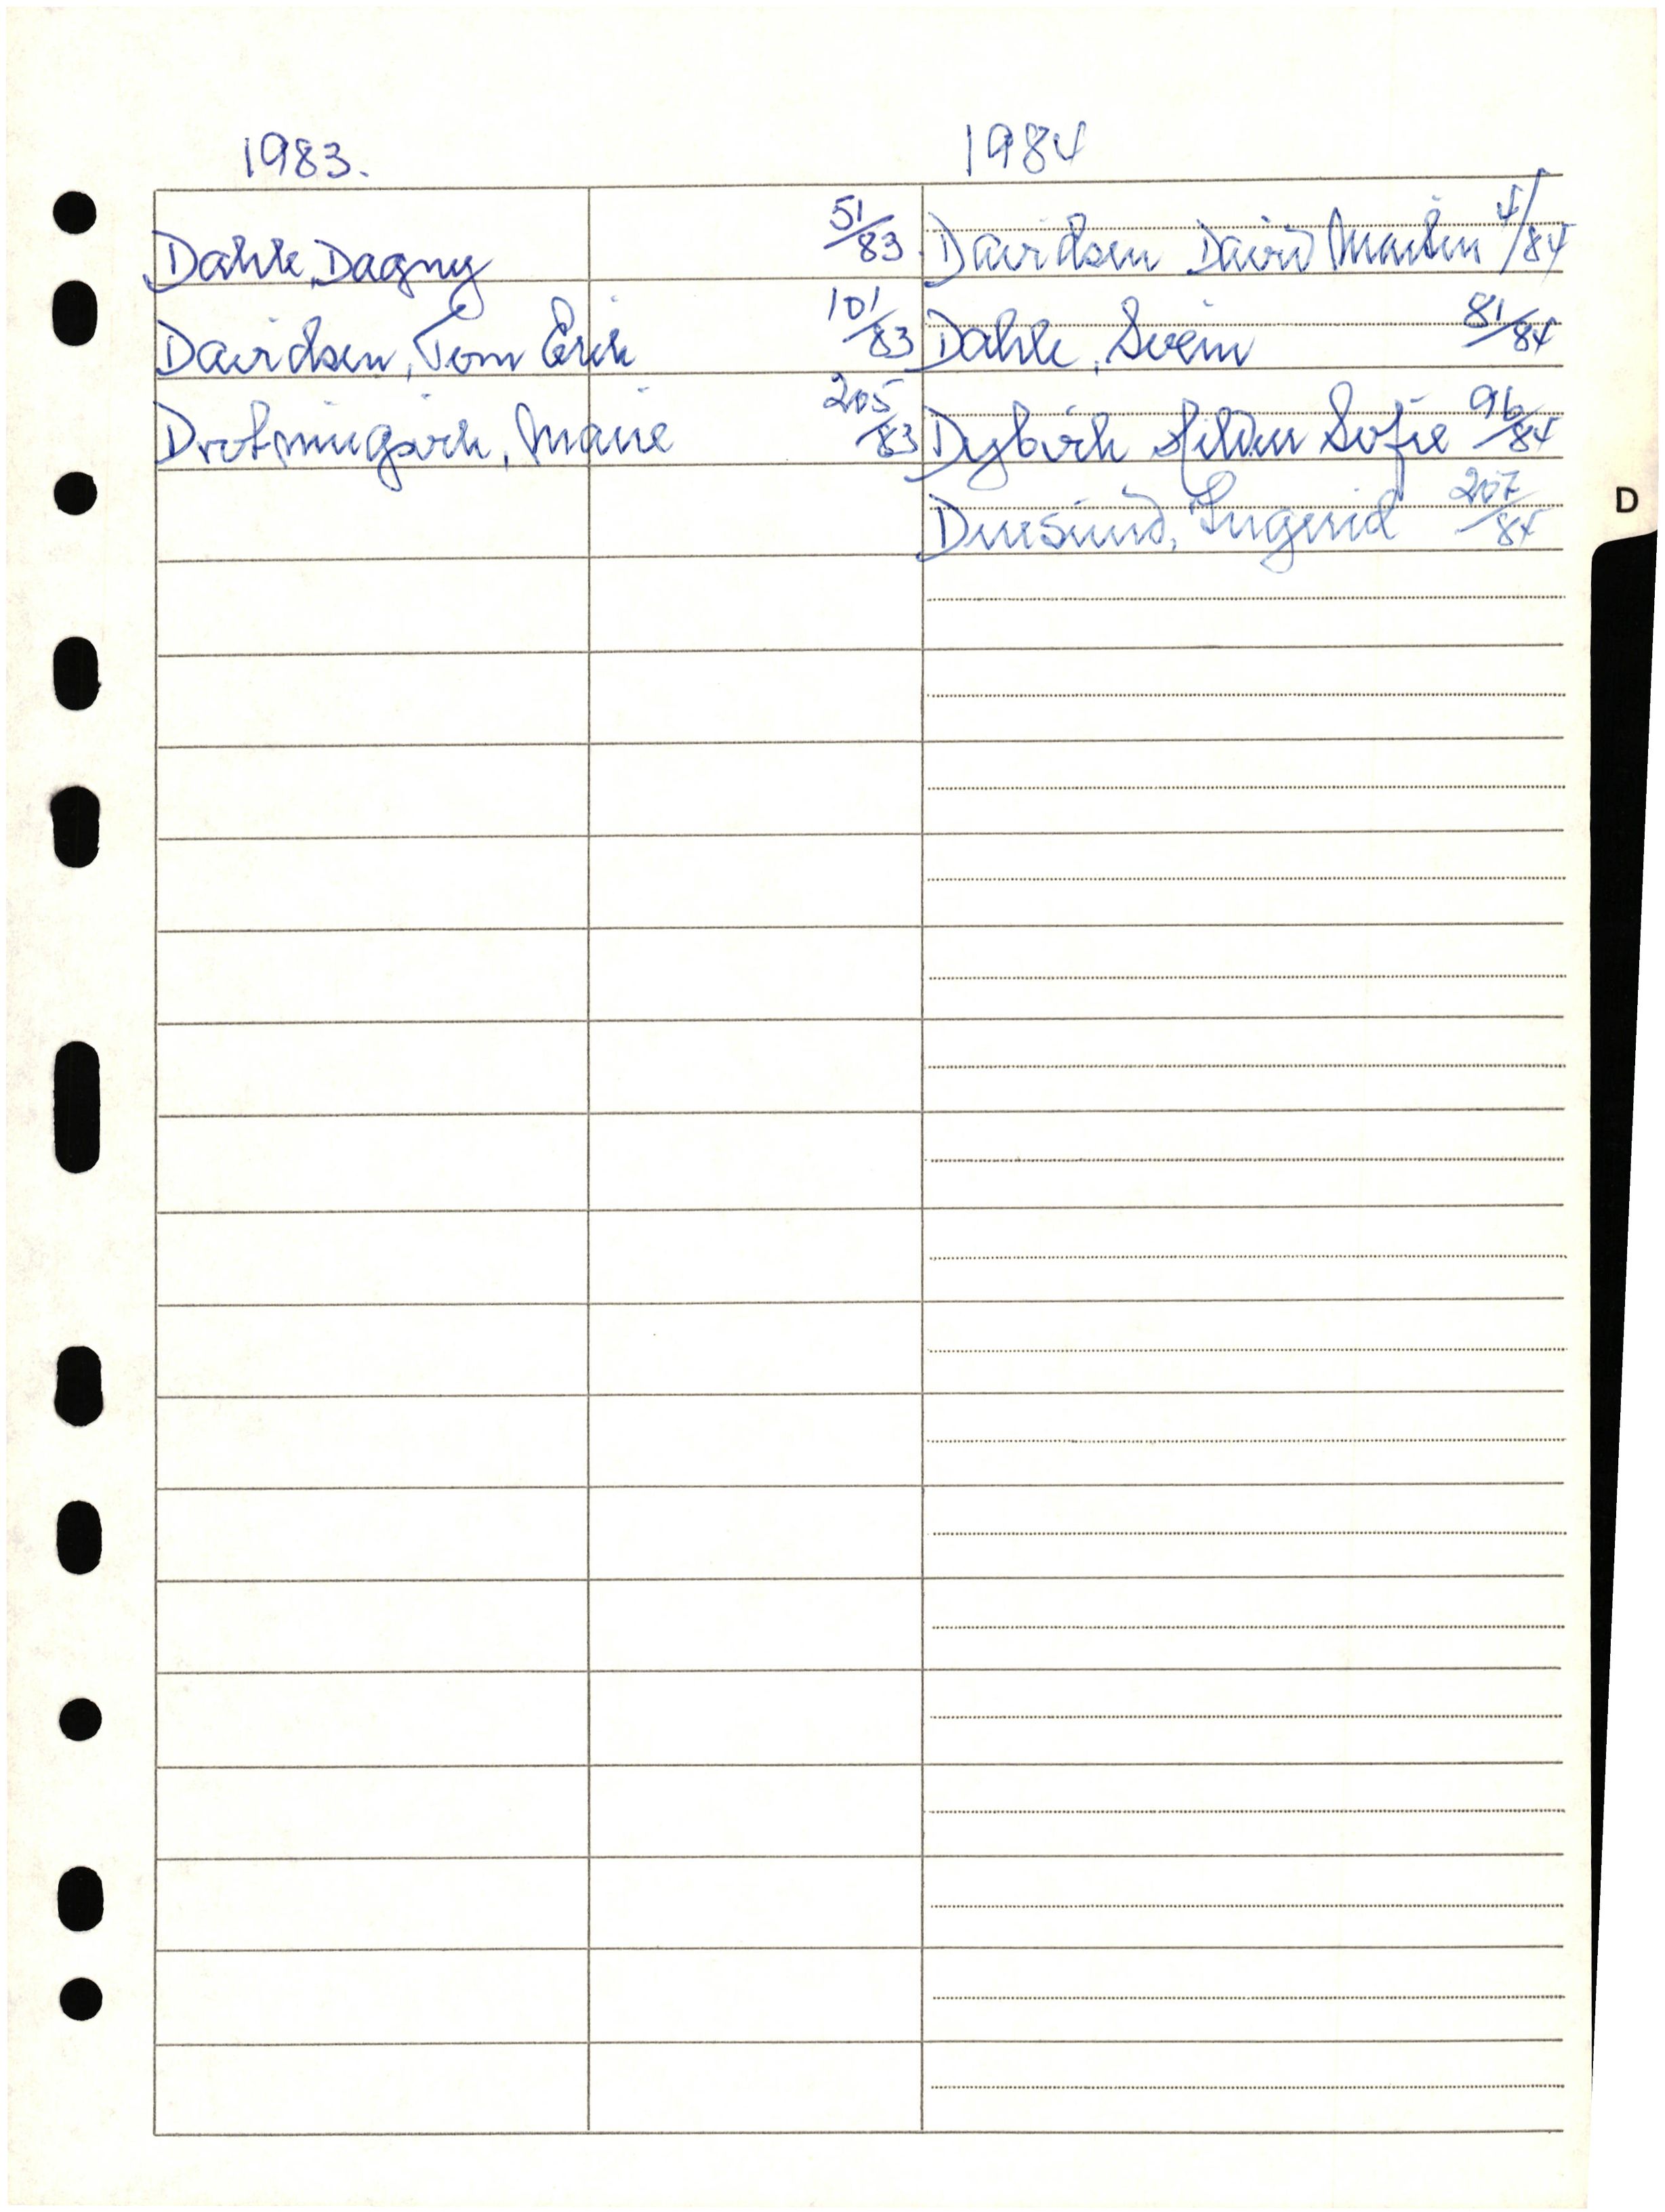 1983.
Dahle, Dagny 51/83
Davidsen, Tom Erik 101/83
Drotningsvik, Marie 205/83
1984
Davidsen David Martin 4/84
Dahle, Svein 81/84
Dybvik Sofie 96/84
Ingerid 207/84
D